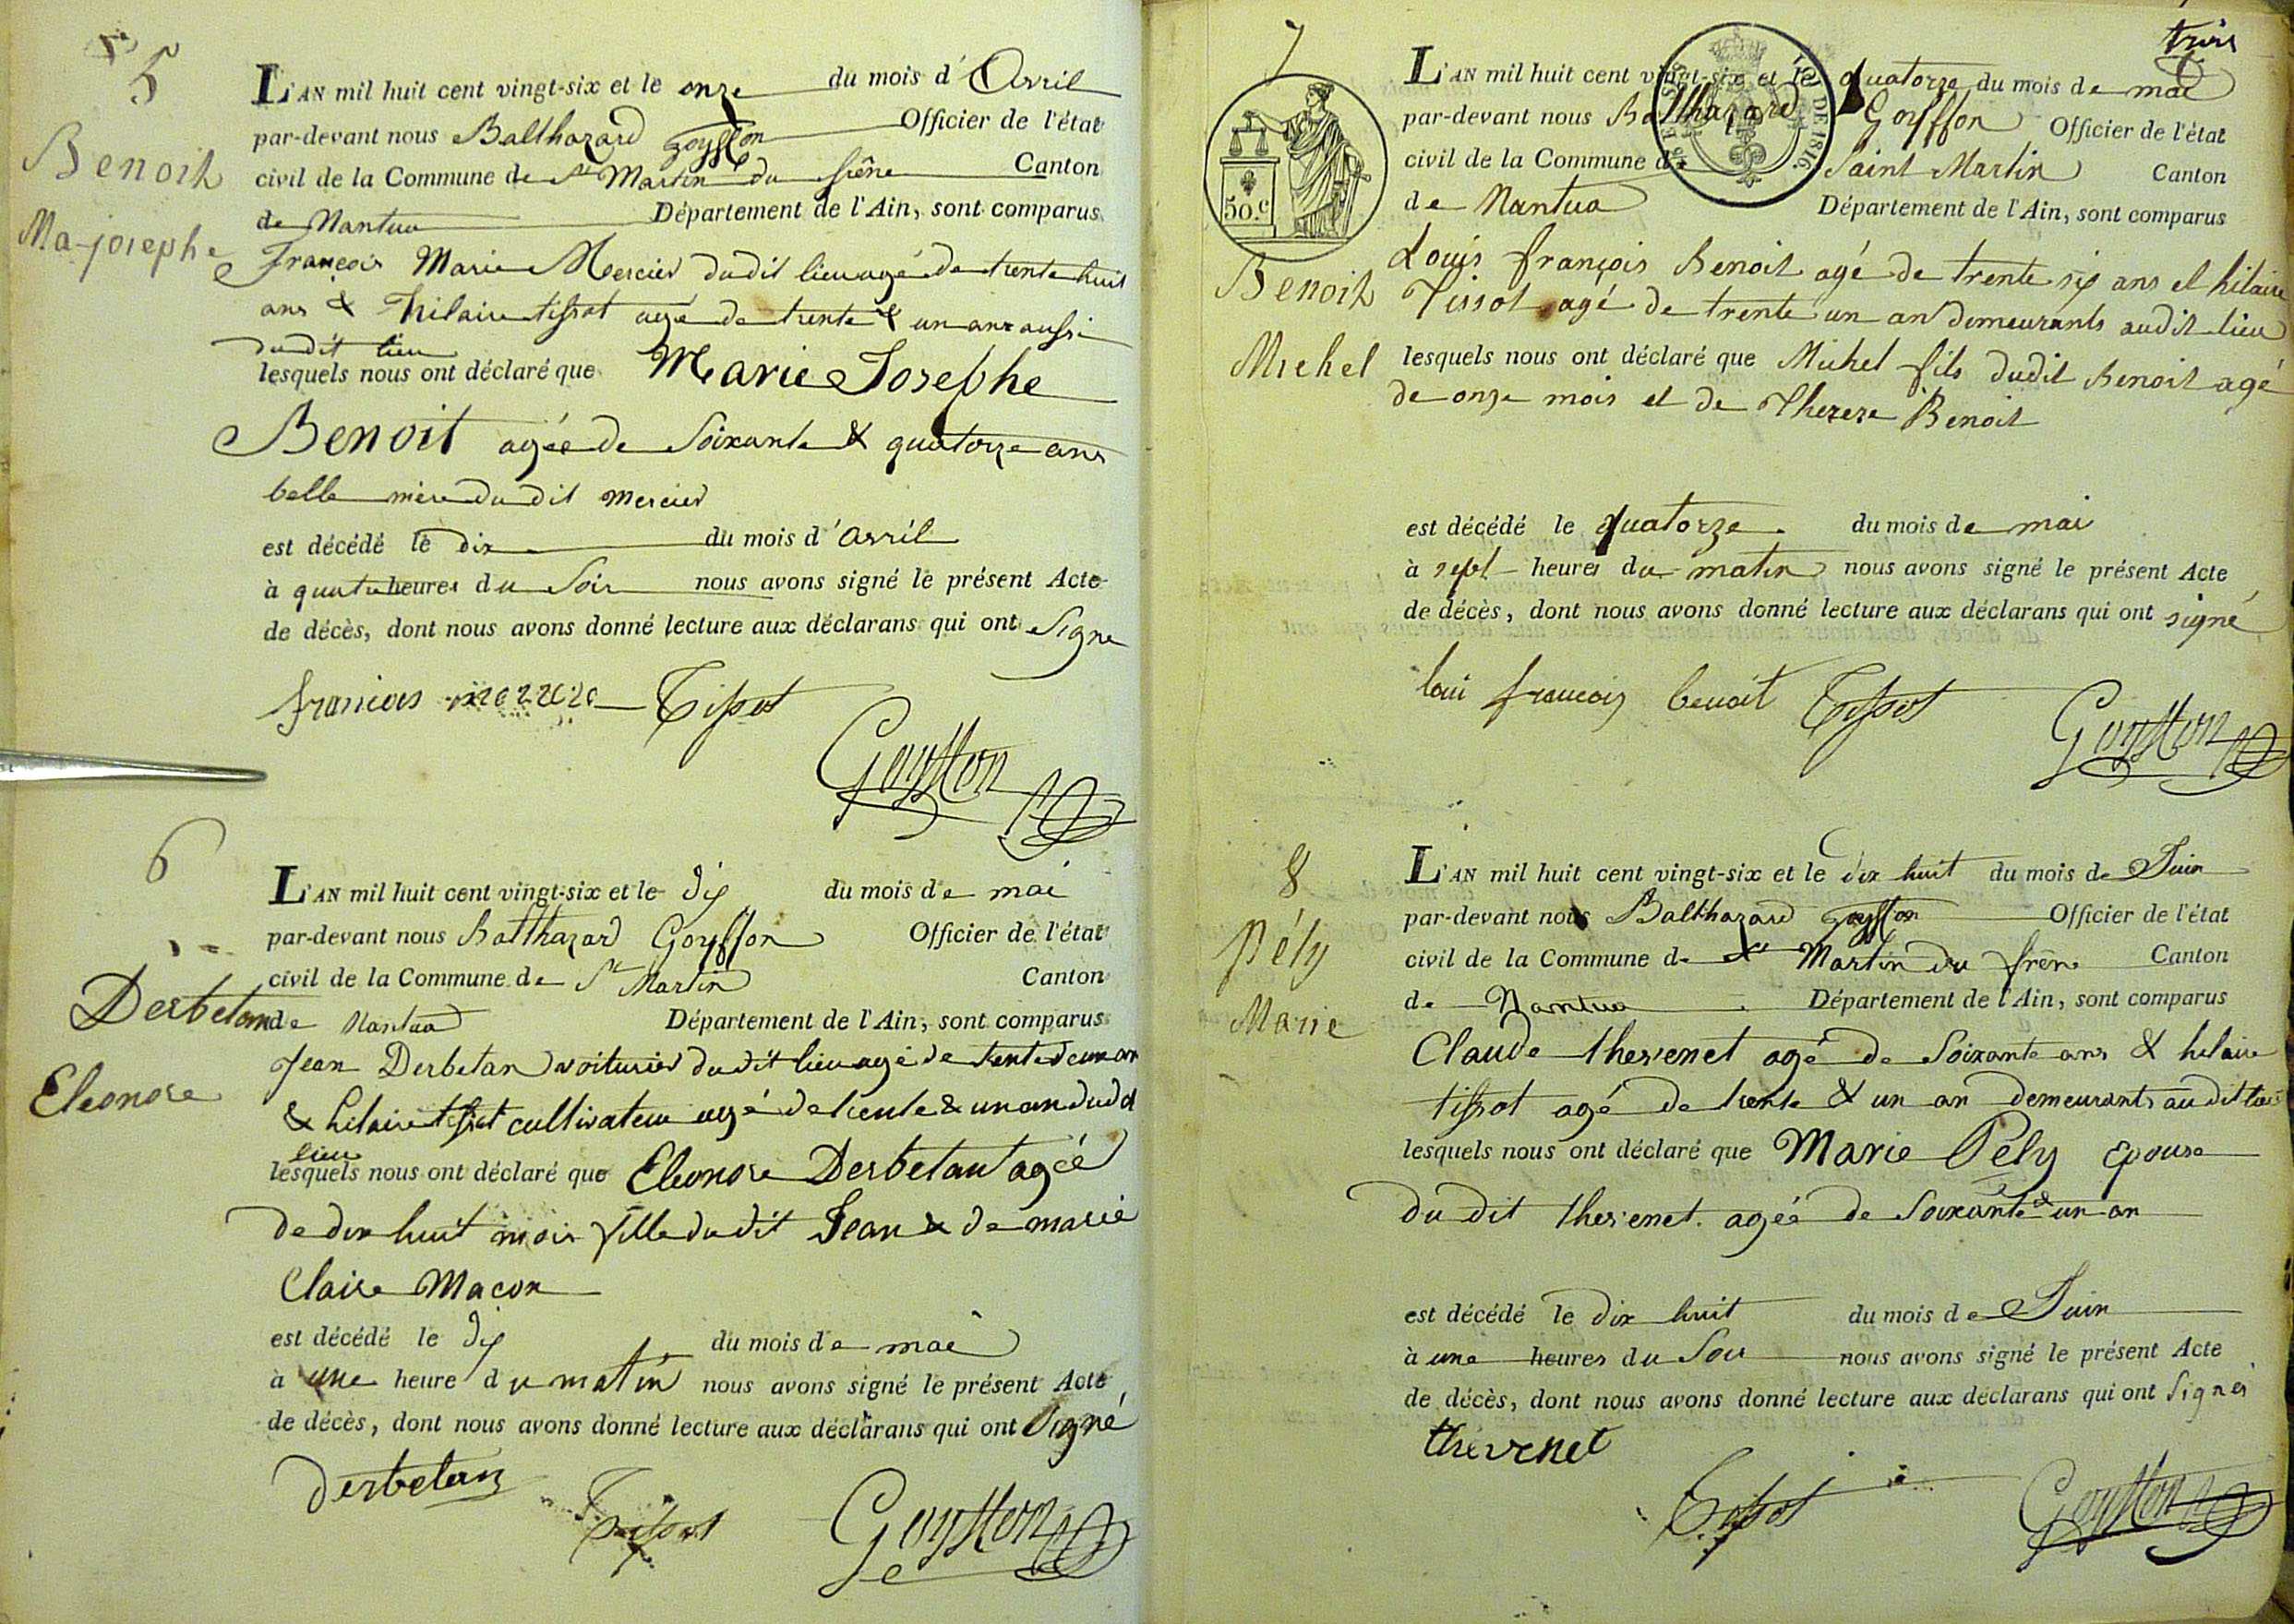 5
Benoit
Ma-josephe
L'AN mil huit cent vingt-six et le onze du mois d'Avril
par-devant nous Balthazard Goyffon Officier de l'état
civil de la Commune de St Martin du frêne Canton
de Nantua Département de l'Ain, sont comparus
François Marie Mercier dudit lieu agé de trente huit
ans & hilaire tissot agé de trente & un ans aussi
dudit lieu
lesquels nous ont déclaré que Marie Josephe
Benoit agée de Soixante & quatorze ans
belle mere du dit Mercier
est décédé le dix du mois d'Avril
à quatre heures du Soir nous avons signé le présent Acte
de décès, dont nous avons donné lecture aux déclarans qui ont Signé
françois Tissot
Goyffon
6
Derbetan
Eleonore
L'AN mil huit cent vingt-six et le dix du mois de mai
par-devant nous Balthazard Goyffon Officier de l'état
civil de la Commune de St Martin Canton
de Nantua Département de l'Ain, sont comparus
Jean Derbetan voiturier dudit lieu agé de trente un an
& hilaire tissot cultivateur agé de trente & un an dudt
lieu
lesquels nous ont déclaré que Eleonore Derbetan agée
de dix huit mois fille du dit Jean & de marie
Claire Macon
est décédé le dix du mois de mai
à une heure du matin nous avons signé le présent Acte
de décès, dont nous avons donné lecture aux déclarans qui ont Signé
Derbetan Tissot Goyffon
trois
7
50.c
DE 1816.
Benoit
Michel
L'AN mil huit cent vingt-six et le quatorze du mois de mai
par-devant nous Balthazard Goyffon Officier de l'état
civil de la Commune de Saint Martin Canton
de Nantua Département de l'Ain, sont comparus
Louis françois Benoit agé de trente six ans et hilaire
Tissot agé de trente un an demeurants audit lieu
lesquels nous ont déclaré que Michel fils dudit Benoit agé
de onze mois et de Thereze Benoit
est décédé le quatorze du mois de mai
à sept heures du matin nous avons signé le présent Acte
de décès, dont nous avons donné lecture aux déclarans qui ont signé
loui francois benoit Tissot Goyffon
8
Pély
Marie
L'AN mil huit cent vingt-six et le dix huit du mois de Juin
par-devant nous Balthazard Goyffon Officier de l'état
civil de la Commune de St Martin du frêne Canton
de Nantua Département de l'Ain, sont comparus
Claude thevenet agé de Soixante ans & hilaire
tissot agé de trente & un an demeurants au dit lieu
lesquels nous ont déclaré que Marie Pely Epouse
du dit thevenet agée de Soixante & un an
est décédé le dix huit du mois de Juin
à une heures du Soir nous avons signé le présent Acte
de décès, dont nous avons donné lecture aux déclarans qui ont Signés
thevenet
Tissot Goyffon